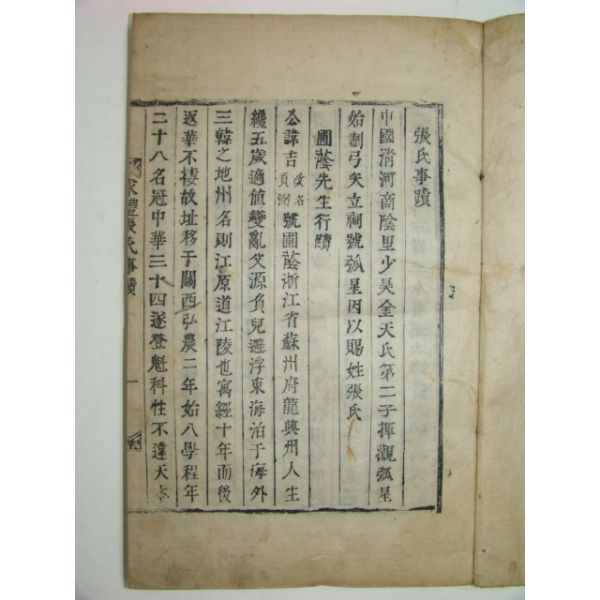 張氏事蹟
中國淸河商陰里少昊金天氏第二子揮觀弧星
始制弓矢立祠號弧星因以賜姓張氏
圃蔭先生行蹟
公諱吉 改名貞弼 號圃蔭浙江省蘇州府龍興州人生
纔五歲適値變亂父源負兒避浮東海泊于海外
三韓之地州名則江原道江陵也寓經十年而後
返華不棲故址移于關西弘農二年始入學程年
二十八名冠中華三十四遂登魁科性不違天本
求禮張氏事蹟
一